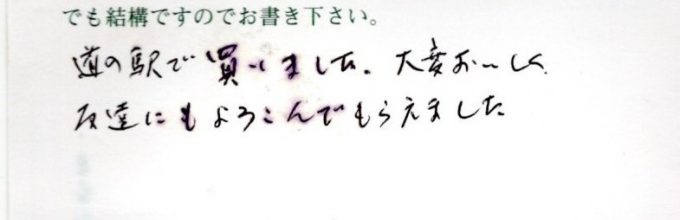 でも結構ですのでお書き下さい。
道の駅で買いました。大変おいしく
友達にもよろこんでもらえました